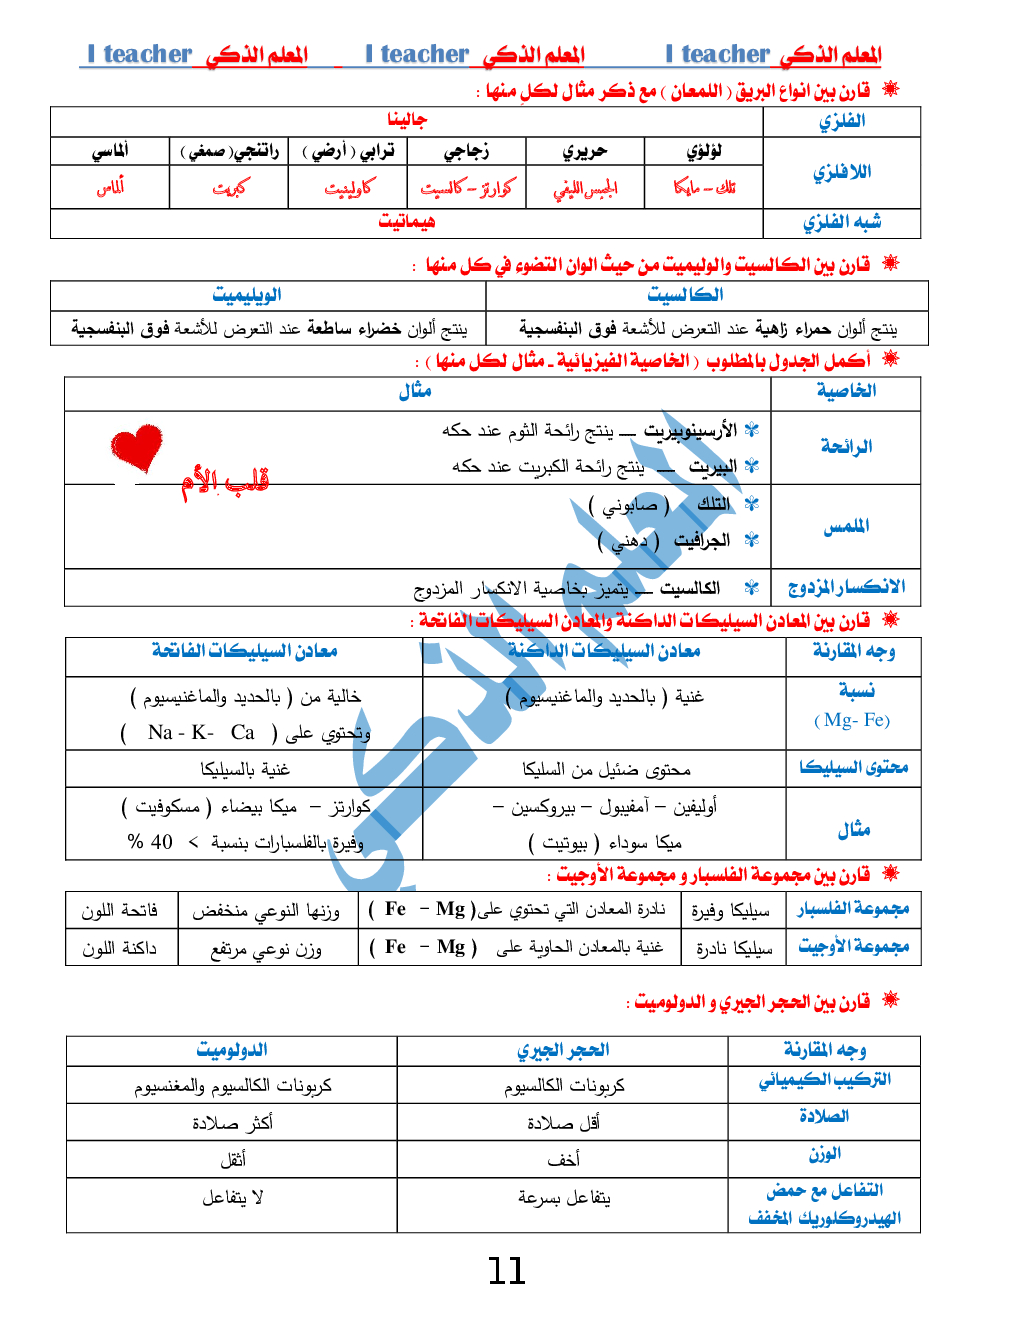 المعلم الذكي I teacher المعلم الذكي I teacher المعلم الذكي I teacher
قارن بين انواع البريق ( اللمعان ) مع ذكر مثال لكلٍ منها :
الفلزي جالينا
اللافلزي لؤلؤي حريري زجاجي ترابي ( أرضي ) راتنجي( صمغي ) ألماسي
تلك – مايكا الجبس الليفي كوارتز – كالسيت كاولينيت كبريت ألماس
شبه الفلزي هيماتيت
قارن بين الكالسيت والوليميت من حيث الوان التضوء في كل منها :
الكالسيت الويليميت
ينتج ألوان حمراء زاهية عند التعرض للأشعة فوق البنفسجية ينتج ألوان خضراء ساطعة عند التعرض للأشعة فوق البنفسجية
أكمل الجدول بالمطلوب ( الخاصية الفيزيائية ـ مثال لكل منها ) :
الخاصية مثال
الرائحة الأرسينوبيريت — ينتج رائحة الثوم عند حكه
البيريت — ينتج رائحة الكبريت عند حكه
قلب الأم
الملمس التلك ( صابوني )
الجرافيت ( دهني )
الانكسار المزدوج الكالسيت — يتميز بخاصية الانكسار المزدوج
قارن بين المعادن السيليكات الداكنة والمعادن السيليكات الفاتحة :
وجه المقارنة معادن السيليكات الداكنة معادن السيليكات الفاتحة
نسبة غنية ( بالحديد والماغنيسيوم ) خالية من ( بالحديد والماغنيسيوم )
(Mg- Fe) وتحتوي على ( Na - K- Ca )
محتوى السيليكا محتوى ضئيل من السليكا غنية بالسيليكا
مثال أوليفين – آمفيبول – بيروكسين – كوارتز – ميكا بيضاء ( مسكوفيت )
ميكا سوداء ( بيوتيت ) وفيرة بالفلسبارات بنسبة > 40 %
قارن بين مجموعة الفلسبار و مجموعة الأوجيت :
مجموعة الفلسبار سيليكا وفيرة نادرة المعادن التي تحتوي على ( Fe – Mg ) وزنها النوعي منخفض فاتحة اللون
مجموعة الأوجيت سيليكا نادرة غنية بالمعادن الحاوية على ( Fe – Mg ) وزن نوعي مرتفع داكنة اللون
قارن بين الحجر الجيري و الدولوميت :
وجه المقارنة الحجر الجيري الدولوميت
التركيب الكيميائي كربونات الكالسيوم كربونات الكالسيوم والمغنسيوم
الصلادة أقل صلادة أكثر صلادة
الوزن أخف أثقل
التفاعل مع حمض يتفاعل بسرعة لا يتفاعل
الهيدروكلوريك المخفف
المعلم الذكي
11